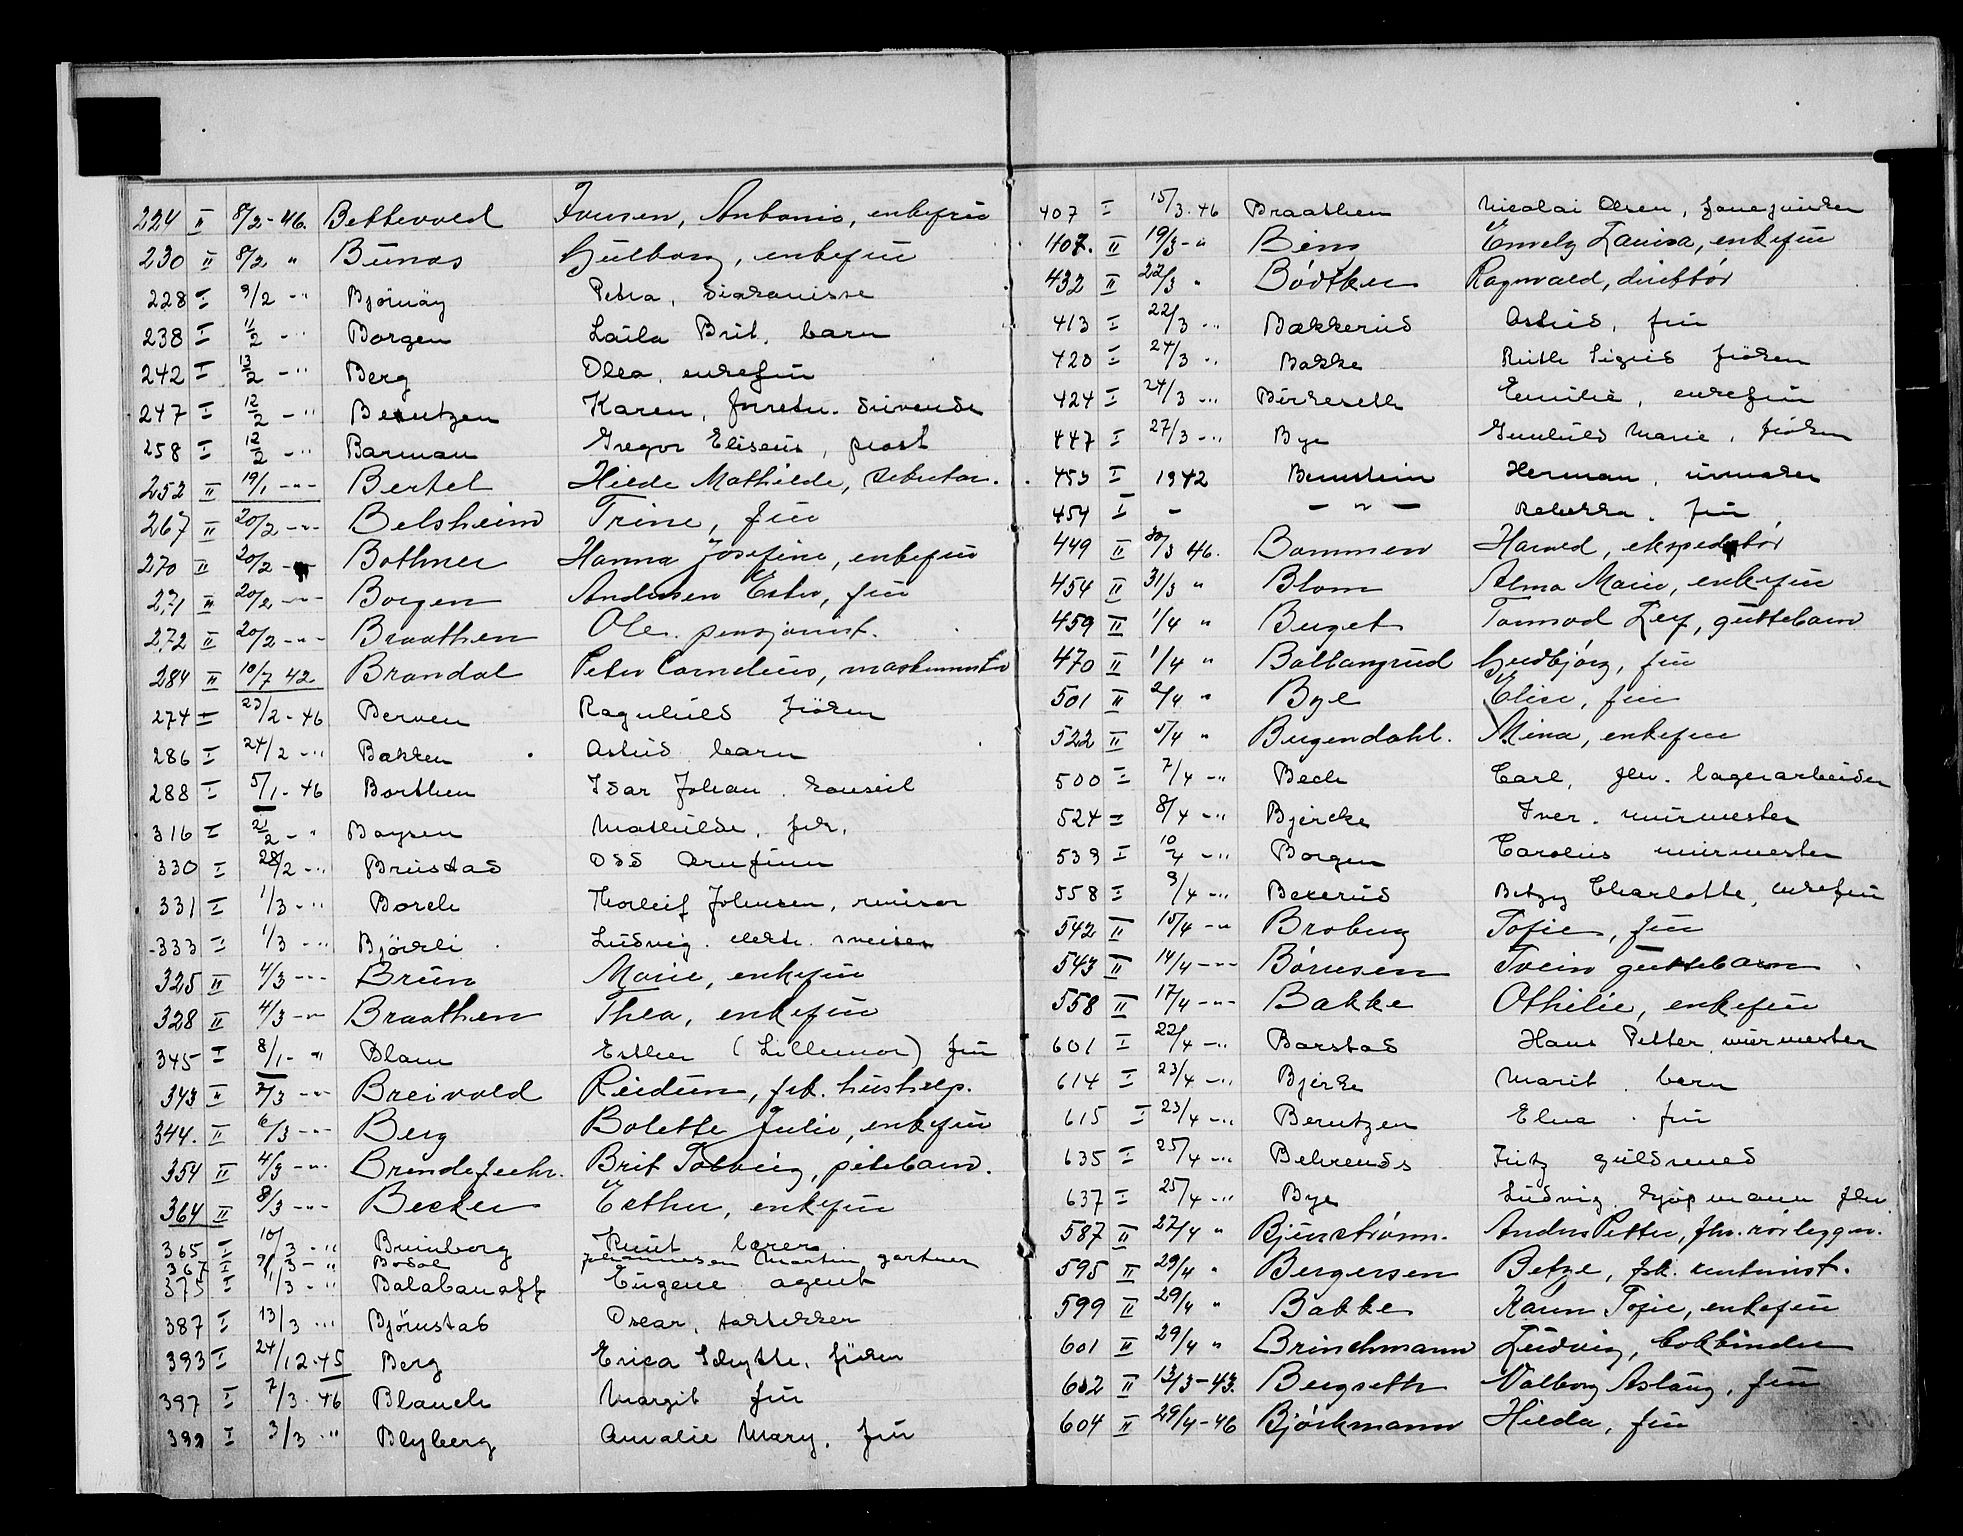 224 II 8/2-46. Bettevold Iversen, Antonie, enkefru
230 II 8/2 " Bunæs Gulborg, enkefru
228 I 9/2 -" Bjørnøy Petra, diakonisse
238 I 11/2 -" Borgen Laila Brit, barn
242 I 13/2 -" Berg Olea, enkefru
247 I 12/2 -" Berntzen Karen, forretn. drivende
258 I 12/2 -" Barman Gregor Eliseus, prost
252 II 19/1 -"- Bertel Hilde Mathilde, sekretær.
267 II 20/2 -"- Belsheim Trine, fru
270 II 20/2 Bothner Hanna Josefine, enkefru
271 II 20/2 -"- Borgen Andersen Ester, fru
272 II 20/2 -"- Braathen Ole. pensjonist.
284 II 10/7 42 Brandal Peter Cornelius, maskinmester
274 I 23/2-46 Berven Ragnhild frøken
286 I 24/2 -" Bakken Astrid barn
288 I 5/1-46 Borthen Idar Johan
316 I 21/2 -" Boysen Mathilde, frk.
330 I 28/2 -" Brustad Odd Arnfinn
331 I 1/3 -" Borch Thorleif Johnsen, revisor
333 I 1/3 -" Bjørli Ludvig. elektr. sveiser
325 II 4/3 -"- Brun Marie, enkefru
328 II 4/3 -"- Braathen Thea, enkefru
345 I 8/1 -" Blom Esther (Lillemor) fru
343 II 7/3 -"- Breivold Reidun, frk. hushjelp.
344. II 6/3 -"- Berg Bolette Julie, enkefru
354 II 4/3 -"- Brit Solveig, pikebarn.
364 II 8/3 -"- Becker Esther, enkefru
365 I 10/3 -" Bruinborg Knut lærer
367 I 9/3 -" Bodal Johannesen Martin gartner
375 I 11/3 -" Balabanoff Eugene agent
387 I 13/3 -" Bjørnstad Oscar, taktekker
393 I 24/12-45 Berg Erica Schytte, frøken
397 I 7/3-46 Blanch Margit fru
399 I 3/3 -" Blyberg Amalie Mary, fru
407 I 15/3-46 Braathen Nicolai Olsen, fanejunker
407. II 19/3 -" Emely Louisa, enkefru
432 II 22/3 " Bødtker Ragnvald, direktør
413 I 22/3 -" Bækkerud Astrid, fru
420 I 24/3 -" Bakke Ruth Sigrid frøken
424 I 24/3 -" Birkeseth Emilie, enkefru
447 I 27/3 -" Bye Gunhild Marie, frøken
453 I 1942 Bernstein Herman, urmaker
454 I - - " - Rebekka. fru
449 II 30/3 46. Bommen Harald, ekspeditør
454 II 31/3 " Blom Alma Marie, enkefru
459 II 1/4 " Berget Tormod Leif, guttebarn
470 II 1/4 " Ballangrud Gudbjørg, fru
501 II 2/4 " Bye Elise, fru
522 II 5/4 " Bugendahl. Mina, enkefru
500 I 7/4 -" Bech Carl, fhv. lagerarbeider
524 I 8/4 -" Bjercke Iver. murmester
539 I 10/4 -" Borgen Carolius murmester
558 I 9/4 -" Bekerud Betzy Charlotte, enkefru
542 II 15/4 -"- Broberg Sofie, fru
543 II 14/4 -"- Børresen Svein guttebarn
558 II 17/4 -"- Bakke Othilie, enkefru
601 I 22/4 -" Barstad Hans Petter, murmester
614 I 23/4 -" Bjerke Marit. barn
615 I 23/4 -" Berntzen Elna. fru
635 I 25/4 -" Behrends Fritz gullsmed
637 I 25/4 -" Bye Ludvig kjøpmann fhv
587 II 27/4 " Bjurstrøm. Anders Petter, fhv. rørlegger.
595 II 29/4 " Bergersen Betze, frk. rentenist.
599 II 29/4 " Bakke Karen Sofie, enkefru
601 II 29/4 " Brinchmann Ludvig, bokbinder
602 II 13/3-43. Bergseth Valborg Aslaug, fru
604 II 29/4-46 Bjørkmann Hilda, fru